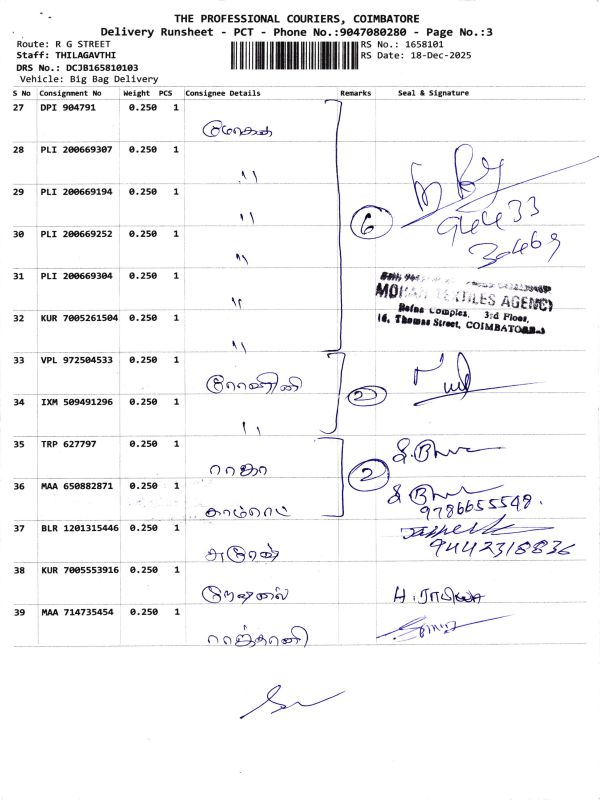 THE PROFESSIONAL COURIERS, COIMBATORE
Delivery Runsheet - PCT - Phone No.:9047080280 - Page No.:3
Route: R G STREET
RS No.: 1658101
Staff: THILAGAVTHI
RS Date: 18-Dec-2025
DRS No.: DCJB165810103
Vehicle: Big Bag Delivery
S No Consignment No Weight PCS Consignee Details Remarks Seal & Signature
27 DPI 904791 0.250 1
28 PLI 200669307 0.250 1
" 
29 PLI 200669194 0.250 1
"
6
94433
30469
30 PLI 200669252 0.250 1
"
31 PLI 200669304 0.250 1
"
MOHAN TEXTILES AGENCY
Complex, 3rd Floor,
16, Thomas Street, COIMBATORE-1
32 KUR 7005261504 0.250 1
"
33 VPL 972504533 0.250 1
2
34 IXM 509491296 0.250 1
"
35 TRP 627797 0.250 1
ராகா
2
36 MAA 650882871 0.250 1
9786655548.
37 BLR 1201315446 0.250 1
9442318836
38 KUR 7005553916 0.250 1
39 MAA 714735454 0.250 1
ராஜ்தானி